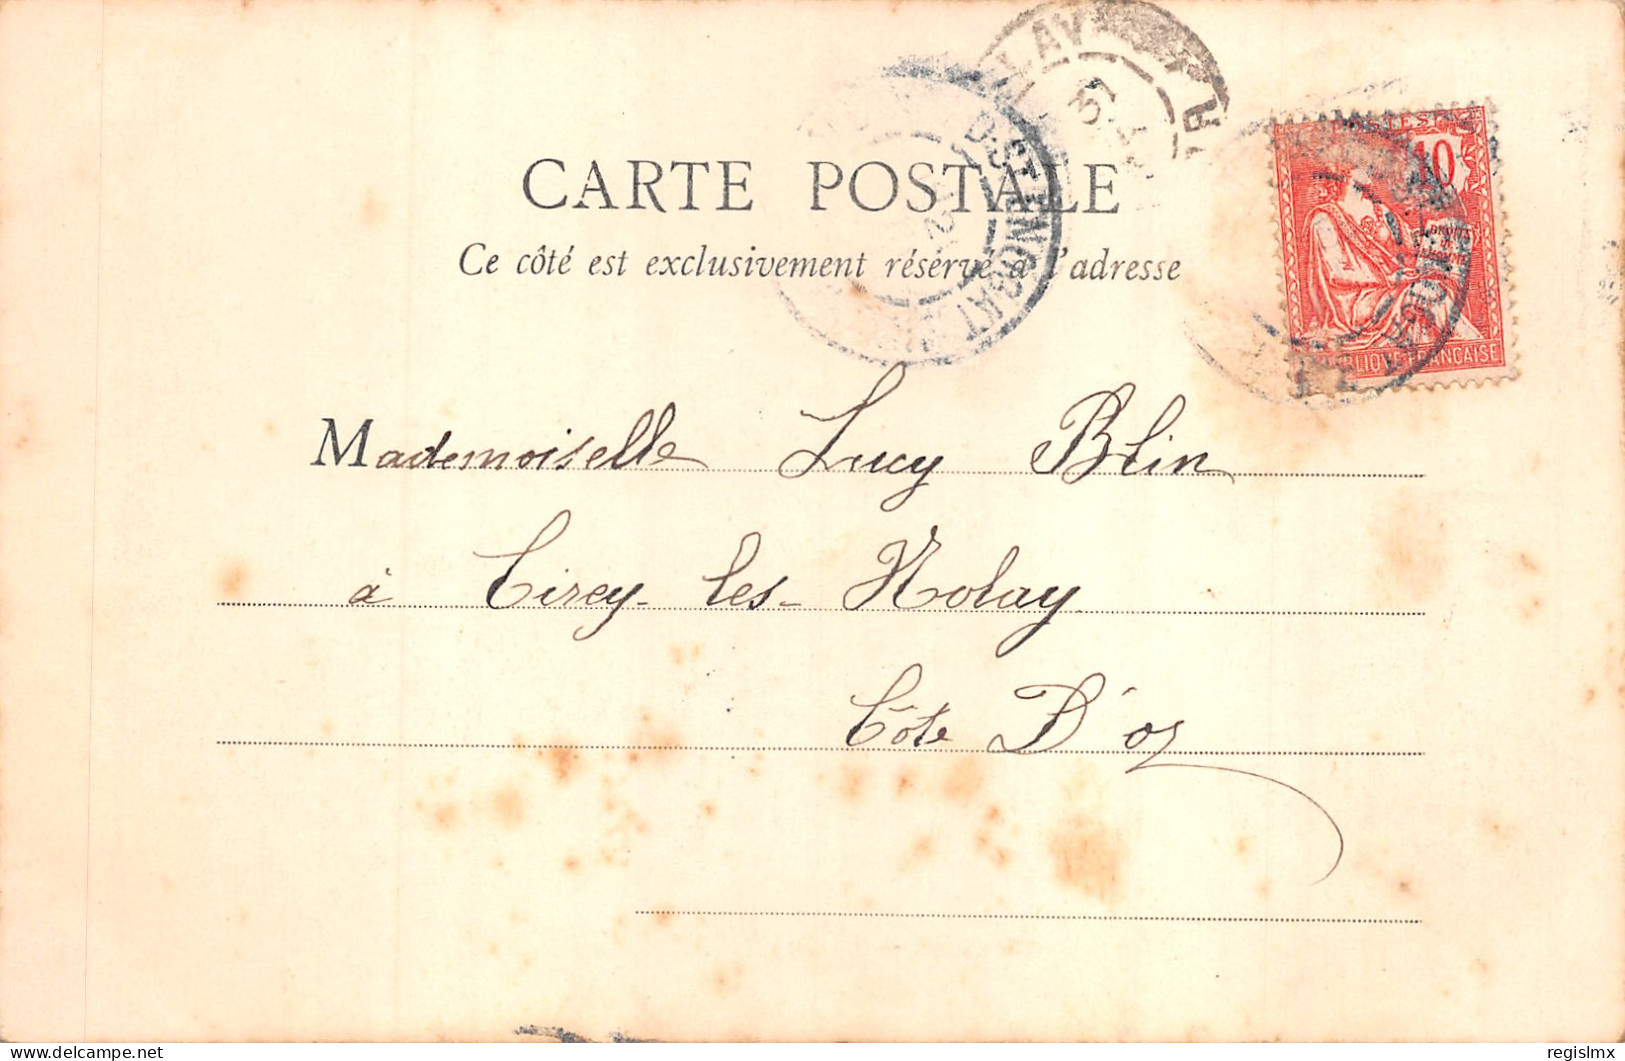 NOLAY
31
D'ST ENCOURT
CARTE POSTALE
Ce côté est exclusivement réservé à l'adresse
POSTES
10
FRANÇAISE
Mademoiselle Lucy Blin
à Cirey-les-Nolay
Côte D'or
delcampe.net
regislmx